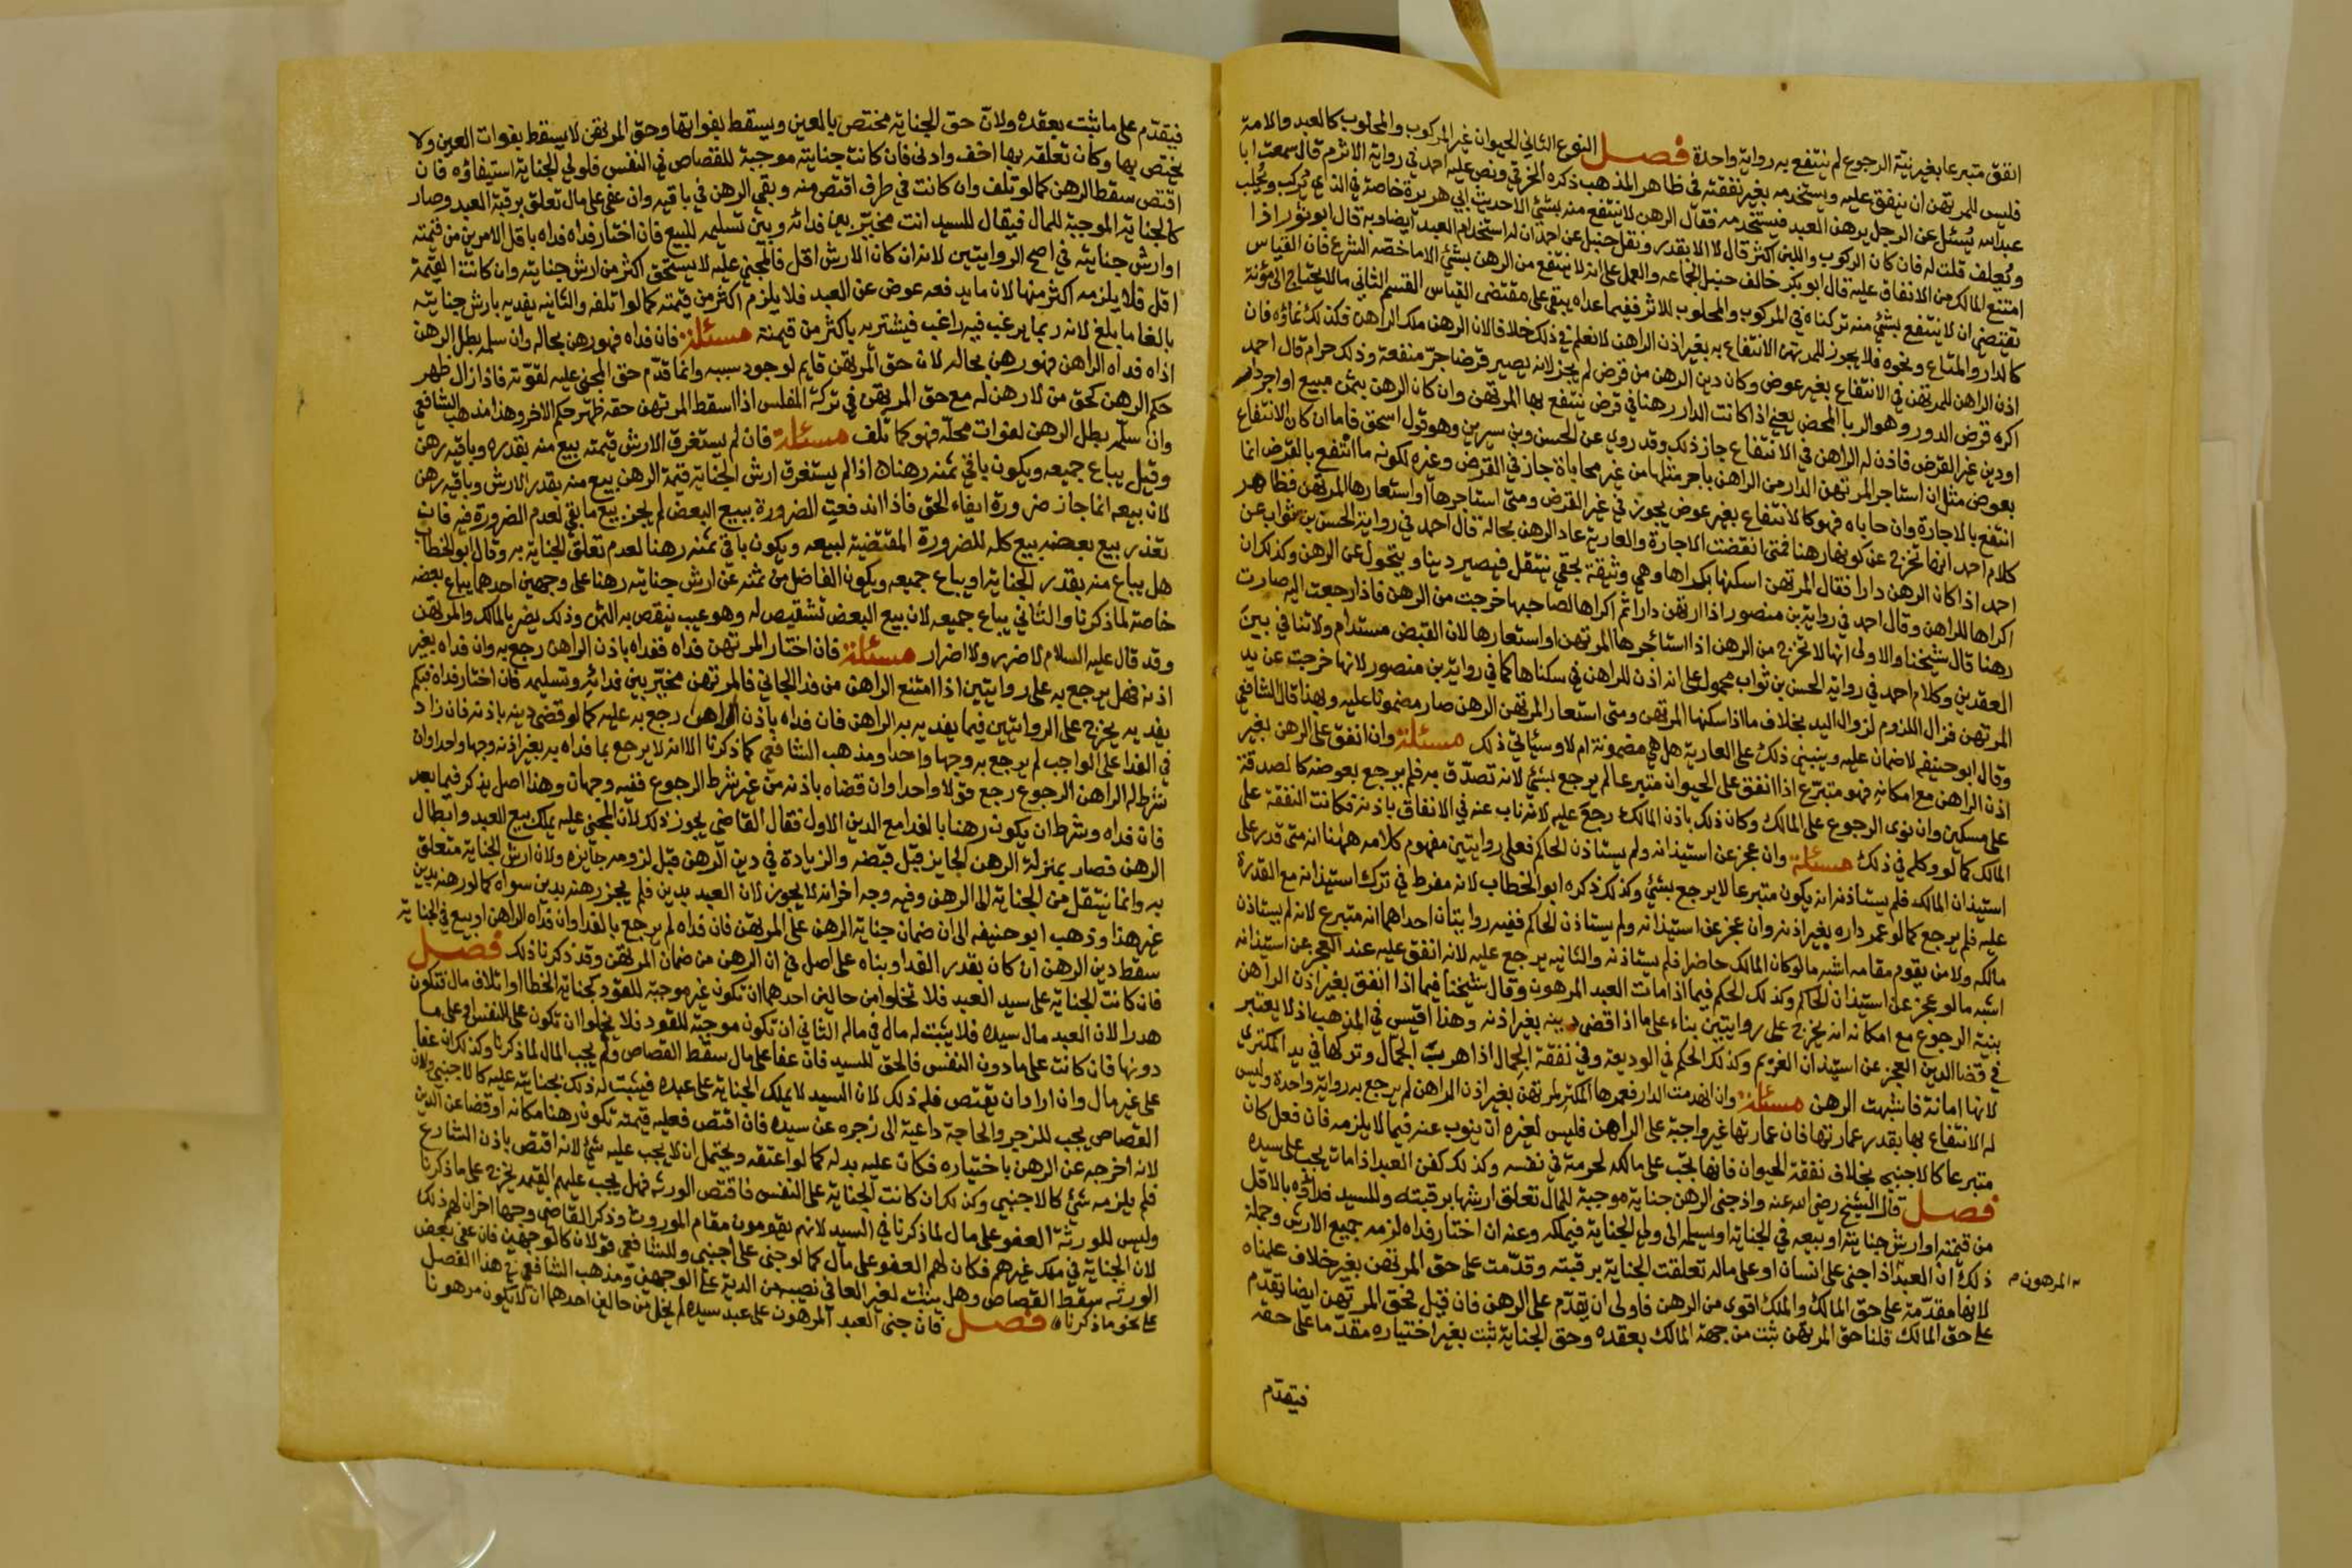 انفق متبرعا بغير نية الرجوع لم ينتفع به رواية واحدة فصل النوع الثاني الحيوان غير المركوب والمحلوب كالعبد والامة
فليس للمرتهن ان ينفق عليه ويستخدمه بغير نفقته في ظاهر المذهب ذكره الخرقي ونص عليه احمد في رواية الاثرم قال سمعت ابا
عبدالله يُسئل عن الرجل يرهن العبد فيستخدمه فقال الرهن لا ينتفع منه بشئ الا حديث ابي هريرة خاصة في الذي يُركب ويُحلب
ويُعلف قلت له فان كان الركوب واللبن اكثر قال لا الا بقدر ونقل حنبل عن احمد ان له استخدام العبد ايضا وبه قال ابو ثور اذا
امتنع المالك من الانفاق عليه قال ابو بكر خالف حنبل الجماعه والعمل على انه لا ينتفع من الرهن بشئ الا ما خصه الشرع فان القياس
يقتضي ان لا ينتفع بشئ منه تركناه في المركوب والمحلوب للاثر ففيما عداه يبقى على مقتضى القياس القسم الثاني مالا يحتاج الى مؤنة
كالدار والمتاع ونحوه فلا يجوز للمرتهن الانتفاع به بغير اذن الراهن لا نعلم في ذلك خلافا لان الرهن ملك الراهن فكذلك نماؤه فان
اذن الراهن للمرتهن في الانتفاع بغير عوض وكان دين الرهن من قرض لم يجز لانه يصير قرضا جرّ منفعة وذلك حرام قال احمد
اكره قرض الدور وهو الربا المحض يعني اذا كانت الدار رهنا في قرض ينتفع بها المرتهن وان كان الرهن بثمن مبيع او اجر دار
او دين غير القرض فاذن له الراهن في الانتفاع جاز ذلك وقد روي عن الحسن وبن سيرين وهو قول اسحق فاما ان كان الانتفاع
بعوض مثل ان استاجر المرتهن الدار من الراهن باجر مثلها من غير محاباة جاز في القرض وغيره لكونه ما انتفع بالقرض انما
انتفع بالاجارة وان حاباه فهو كالانتفاع بغير عوض يجوز في غير القرض ومتى استاجرها او استعارها المرتهن فظاهر
كلام احمد انها تخرج عن كونها رهنا فمتى انقضت الاجارة والعارية عاد الرهن بحاله قال احمد في رواية الحسن بن ثواب عن
احمد اذا كان الرهن دارا فقال المرتهن اسكنها بكراها وهي وثيقة بحقي ينتقل فيصير دينا ويتحول عن الرهن وكذلك ان
اكراها للراهن وقال احمد في رواية بن منصور اذا ارتهن دارا ثم اكراها لصاحبها خرجت من الرهن فاذا رجعت اليه صارت
رهنا قال شيخنا والاولى انها لا تخرج من الرهن اذا استأجرها المرتهن او استعارها لان القبض مستدام ولا تنافي بين
العقدين وكلام احمد في رواية الحسن بن ثواب محمول على انه اذن للراهن في سكناها كما في رواية بن منصور لانها خرجت عن يد
المرتهن فزال اللزوم لزوال اليد بخلاف ما اذا سكنها المرتهن ومتى استعار المرتهن الرهن صار مضمونا عليه وبهذا قال الشافعي
وقال ابو حنيفه لا ضمان عليه وينبني ذلك على العارية هل هي مضمونة ام لا وسيأتي ذلك مسئلة وان انفق على الرهن بغير
اذن الراهن مع امكانه فهو متبرّع اذا انفق على الحيوان متبرعا لم يرجع بشئ لانه تصدّق به فلم يرجع بعوضه كالصدقة
على مسكين وان نوى الرجوع على المالك وكان ذلك باذن المالك رجع عليه لانه ناب عنه في الانفاق باذنه فكانت النفقة على
المالك كما لو وكله في ذلك مسئلة وان عجز عن استيذانه ولم يستاذن الحاكم فعلى روايتين مفهوم كلامه ههنا انه متى قدر على
استيذان المالك فلم يستاذنه انه يكون متبرعا لا يرجع بشئ وكذلك ذكره ابو الخطاب لانه مفرط في ترك استيذانه مع القدرة
عليه فلم يرجع كما لو عمر داره بغير اذنه وان عجز عن استيذانه ولم يستاذن الحاكم ففيه روايتان احداهما انه متبرع لانه لم يستاذن
مالكه ولا من يقوم مقامه اشبه ما لو كان المالك حاضرا فلم يستاذنه والثانيه يرجع عليه لانه انفق عليه عند العجز عن استيذانه
اشبه ما لو عجز عن استيذان الحاكم وكذلك الحكم فيما اذا مات العبد المرهون وقال شيخنا فيما اذا انفق بغير اذن الراهن
بنية الرجوع مع امكانه انه يخرج على روايتين بناء على ما اذا قضى دينه بغير اذنه وهذا اقيس في المذهب اذ لا يعتبر
في قضا الدين العجز عن استيذان الغريم وكذلك الحكم في الوديعة وفي نفقة الجمال اذا هرب الجمّال وتركها في يد المكتري
لانها امانة فاشبهت الرهن مسئلة وان انهدمت الدار فعمرها المرتهن بغير اذن الراهن لم يرجع به رواية واحدة وليس
له الانتفاع بها بقدر عمارتها فان عمارتها غير واجبة على الراهن فليس لغيره ان ينوب عنه فيما لا يلزمه فان فعل كان
متبرعا كالاجنبي بخلاف نفقة الحيوان فانها تجب على مالكه لحرمته في نفسه وكذلك كفن العبد اذا مات يجب على سيده
فصل قال الشيخ رضى الله عنه واذ جنى الرهن جناية موجبة للمال تعلق ارشها برقبته وللسيد فداؤه بالاقل
من قيمته او ارش جنايته او بيعه في الجناية او يسلمه الى ولي الجناية فيملكه وعنه ان اختار فداه لزمه جميع الارش وجملة
ذلك ان العبد اذا جنى على انسان او على ماله تعلقت الجناية برقبته وقدّمت على حق المرتهن بغير خلاف علمناه
المرهون
لانها مقدّمة على حق المالك والملك اقوى من الرهن فاولى ان يقدّم على الرهن فان قيل فحق المرتهن ايضا يقدّم
على حق المالك قلنا حق المرتهن ثبت من جهة المالك بعقده وحق الجناية ثبت بغير اختياره مقدّما على حقه
فيقدّم
فيقدّم على ما ثبت بعقده ولان حق الجناية مختص بالعين ويسقط بفواتها وحق المرتهن لا يسقط بفوات العين ولا
يختص بها وكان تعلقه بها اخف وادنى فان كانت جنايته موجبة للقصاص في النفس فلولي الجناية استيفاؤه فان
اقتص سقط الرهن كما لو تلف وان كانت في طرف اقتص منه وبقي الرهن في باقيه وان عفى على مال تعلق برقبة العبد وصار
كالجناية الموجبة للمال فيقال للسيد انت مخيّر بين فدائه وبين تسليمه للبيع فان اختار فداه فداه باقل الامرين من قيمته
او ارش جنايته في اصح الروايتين لانه ان كان الارش اقل فالمجني عليه لا يستحق اكثر من ارش جنايته وان كانت القيمة
اقل فلا يلزمه اكثر منها لان ما يدفعه عوض عن العبد فلا يلزم اكثر من قيمته كما لو اتلفه والثانيه يفديه بارش جنايته
بالغا ما بلغ لانه ربما يرغب فيه راغب فيشتريه باكثر من قيمته مسئلة فان فداه فهو رهن بحاله وان سلمه بطل الرهن
اذا فداه الراهن فهو رهن بحاله لان حق المرتهن قايم لوجود سببه وانما قدّم حق المجني عليه لقوّته فاذا زال ظهر
حكم الرهن كحق من لا رهن له مع حق المرتهن في تركة المفلس اذا اسقط المرتهن حقه ظهر حكم الاخر وهذا مذهب الشافعي
وان سلمه بطل الرهن لفوات محلّه فهو كما تلف مسئلة فان لم يستغرق الارش قيمته بيع منه بقدره وباقيه رهن
وقيل يباع جميعه ويكون باقي ثمنه رهنا اذا لم يستغرق ارش الجناية قيمة الرهن بيع منه بقدر الارش وباقيه رهن
لان بيعه انما جاز ضرورة ايفاء الحق فاذا اندفعت الضرورة ببيع البعض لم يجز بيع ما بقي لعدم الضرورة فيه فان
تعذر بيع بعضه بيع كله للضرورة المقتضية لبيعه ويكون باقي ثمنه رهنا لعدم تعلق الجناية به وقال ابو الخطاب
هل يباع منه بقدر الجناية او يباع جميعه ويكون الفاضل من ثمنه عن ارش جنايته رهنا على وجهين احدهما يباع بعضه
خاصة لما ذكرنا والثاني يباع جميعه لان بيع البعض تشقيص له وهو عيب ينقص به الثمن وذلك يضر بالمالك والمرتهن
وقد قال عليه السلام لا ضرر ولا اضرار مسئلة فان اختار المرتهن فداه ففداه باذن الراهن رجع به وان فداه بغير
اذنه فهل يرجع به على روايتين اذا امتنع الراهن من فدا الجاني فالمرتهن مخيّر بين فدائه وتسليمه فان اختار فداه فبكم
يفديه يخرج على الروايتين فيما يفديه به الراهن فان فداه باذن الراهن رجع به عليه كما لو قضى دينه باذنه فان زاد
في الفدا على الواجب لم يرجع به وجها واحدا ومذهب الشافعي كما ذكرنا الا انه لا يرجع بما فداه به بغير اذنه وجها واحدا وان
شرط له الراهن الرجوع رجع قولا واحدا وان قضاه باذنه من غير شرط الرجوع ففيه وجهان وهذا اصل يذكر فيما بعد
فان فداه وشرط ان يكون رهنا بالفدا مع الدين الاول فقال القاضي يجوز ذلك لان المجني عليه يملك بيع العبد وابطال
الرهن فصار بمنزلة الرهن الجايز قبل قبضه والزيادة في دين الرهن قبل لزومه جايزه ولان ارش الجناية متعلق
به وانما ينتقل من الجناية الى الرهن وفيه وجه اخر انه لا يجوز لان العبد بدين فلم يجز رهنه بدين سواه كما لو رهنه بدين
غير هذا وذهب ابو حنيفه الى ان ضمان جناية الرهن على المرتهن فان فداه لم يرجع بالفدا وان فداه الراهن او بيع في الجناية
سقط دين الرهن ان كان بقدر الفدا وبناه على اصل في ان الرهن من ضمان المرتهن وقد ذكرنا ذلك فصل
فان كانت الجناية على سيد العبد فلا تخلوا من حالين احدهما ان تكون غير موجبة للقود كجناية الخطا او اتلاف مال فتكون
هدرا لان العبد مال سيده فلا يثبت له مال في ماله الثاني ان تكون موجبة للقود فلا يخلوا ان تكون على النفس او على ما
دونها فان كانت على ما دون النفس فالحق للسيد فان عفا على مال سقط القصاص ولم يجب المال لما ذكرنا وكذلك ان عفا
على غير مال وان اراد ان يقتص فله ذلك لان السيد لا يملك الجناية على عبده فيثبت له ذلك بجنايته عليه كالاجنبي ولان
القصاص يجب للزجر والحاجة داعية الى زجره عن سيده فان اقتص فعليه قيمته تكون رهنا مكانه او قضا عن الدين
لانه اخرجه عن الرهن باختياره فكان عليه بدله كما لو اعتقه ويحتمل ان لا يجب عليه شئ لانه اقتص باذن الشارع
فلم يلزمه شئ كالاجنبي وكذلك ان كانت الجناية على النفس فاقتص الورثه فهل يجب عليهم القيمه يخرج على ما ذكرنا
وليس للورثة العفو على مال لما ذكرنا في السيد لانهم يقومون مقام الموروث وذكر القاضي وجها اخر ان لهم ذلك
لان الجناية في ملك غيرهم فكان لهم العفو على مال كما لو جنى على اجنبي وللشافعي قولان كالوجهين فان عفى بعض
الورثه سقط القصاص وهل يثبت لغير العافي نصيبه من الدية على الوجهين ومذهب الشافعي في هذا الفصل
على نحو ما ذكرنا فصل فان جنى العبد المرهون على عبد سيده لم يخل من حالين احدهما ان لا يكون مرهونا